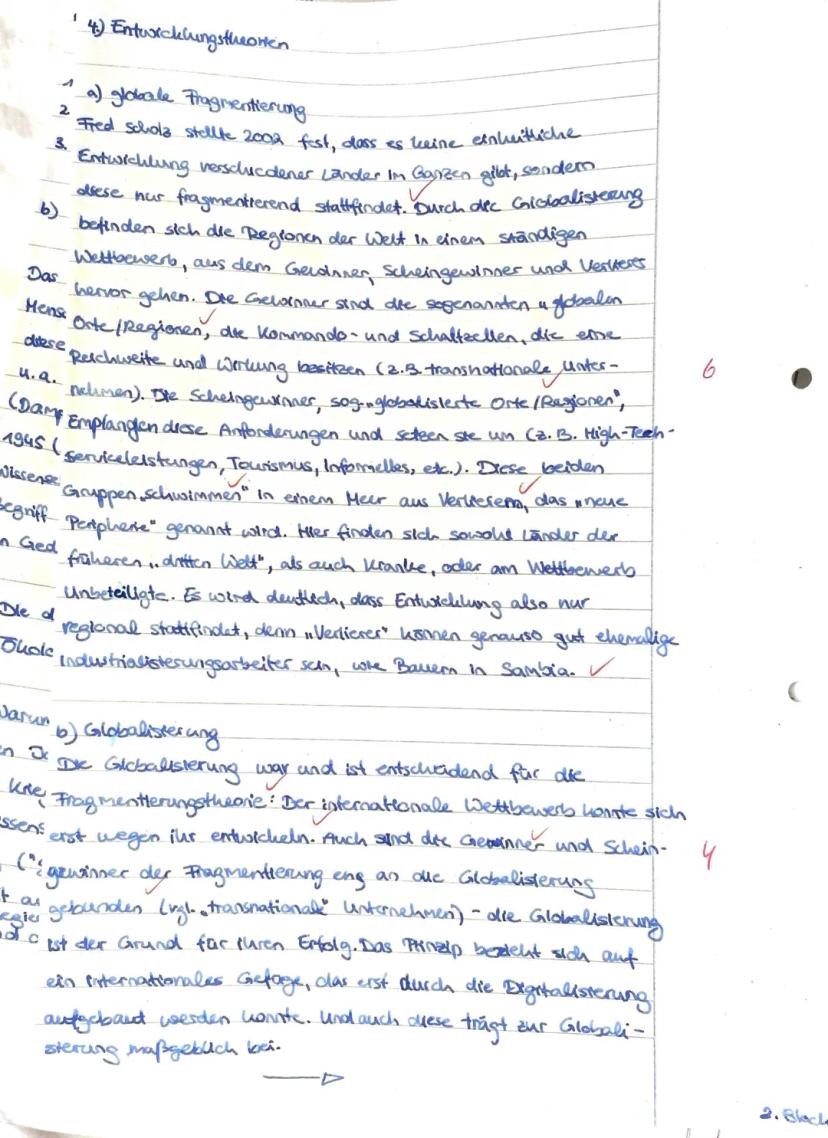 4.) Entwicklungstheorien
1 a) globale Fragmentierung
2 Fred Scholz stellte 2002 fest, dass es keine einheitliche
3. Entwicklung verschiedener Länder im Ganzen gibt, sondern
diese nur fragmentierend stattfindet. Durch die Globalisierung
b) befinden sich die Regionen der Welt in einem ständigen
Wettbewerb, aus dem Gewinner, Scheingewinner und Verlierer
Das hervor gehen. Die Gewinner sind die sogenannten „globalen
Mens Orte/Regionen, die Kommando- und Schaltzellen, die eine
diese Reichweite und Wirkung besitzen (z.B. transnationale Unter-
u.a. nehmen). Die Scheingewinner, sog. „globalisierte Orte/Regionen",
(Damp Empfangen diese Anforderungen und setzen sie um (z.B. High-Tech-
1945 ( Serviceleistungen, Tourismus, Informelles, etc.). Diese beiden
Wissens Gruppen „schwimmen" in einem Meer aus Verlierern, das „neue
Begriff Peripherie" genannt wird. Hier finden sich sowohl Länder der
n Ged früheren „dritten Welt", als auch Kranke, oder am Wettbewerb
Unbeteiligte. Es wird deutlich, dass Entwicklung also nur
Die d regional stattfindet, denn „Verlierer" können genauso gut ehemalige
Ökolo Industrialisierungsarbeiter sein, wie Bauern in Sambia.
Warum b) Globalisierung
Die Globalisierung war und ist entscheidend für die
Krie Fragmentierungstheorie: Der internationale Wettbewerb konnte sich
ssens erst wegen ihr entwickeln. Auch sind die Gewinner und Schein-
gewinner der Fragmentierung eng an die Globalisierung
t au gebunden (vgl. „transnationale" Unternehmen) - die Globalisierung
ist der Grund für ihren Erfolg. Das Prinzip bezieht sich auf
ein internationales Gefüge, das erst durch die Digitalisierung
aufgebaut werden konnte. Und auch diese trägt zur Globali-
sierung maßgeblich bei.
6
4
2. Block